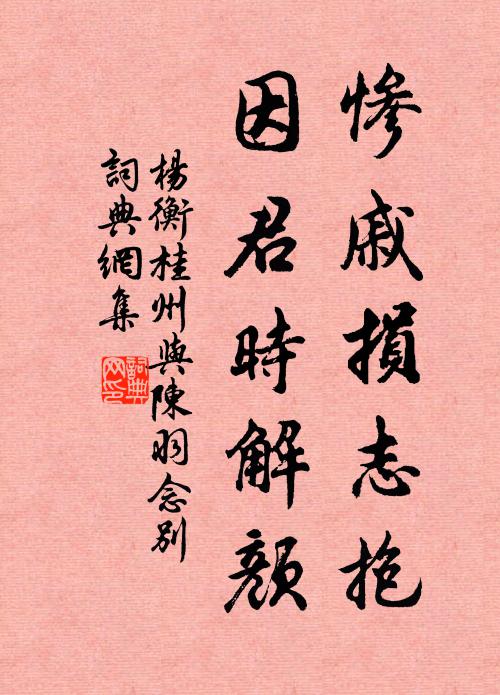 慘戚損志抱
因君時解顏
楊衡桂州與陳羽念別
詞典網集
詞典
网印